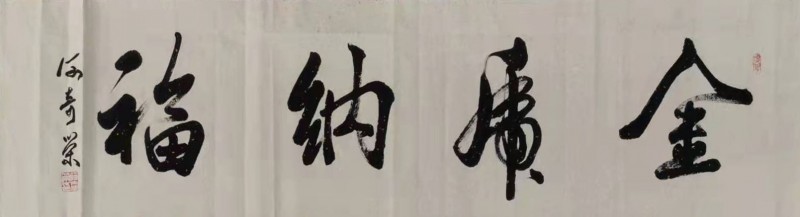 金虎纳福
何奇荣